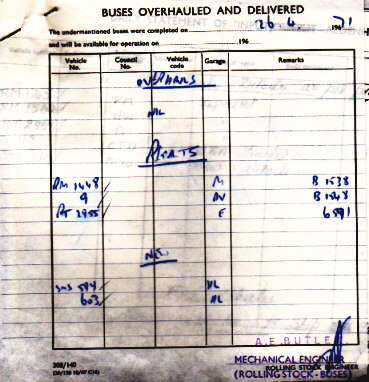 BUSES OVERHAULED AND DELIVERED
The undermentioned buses were completed on 26 4 196 71
and will be available for operation on 196
Vehicle No. Council No. Vehicle code Garage Remarks
OVERHAULS
NIL
REPAINTS
RM 1448 / M B 1538
9 / AV B 1548
RT 2955 / E 6591
NEW
SMS 594 / HL
603 / HL
A. E. BUTLER
MECHANICAL ENGINEER
ROLLING STOCK ENGINEER
(ROLLING STOCK - BUSES)
308/140